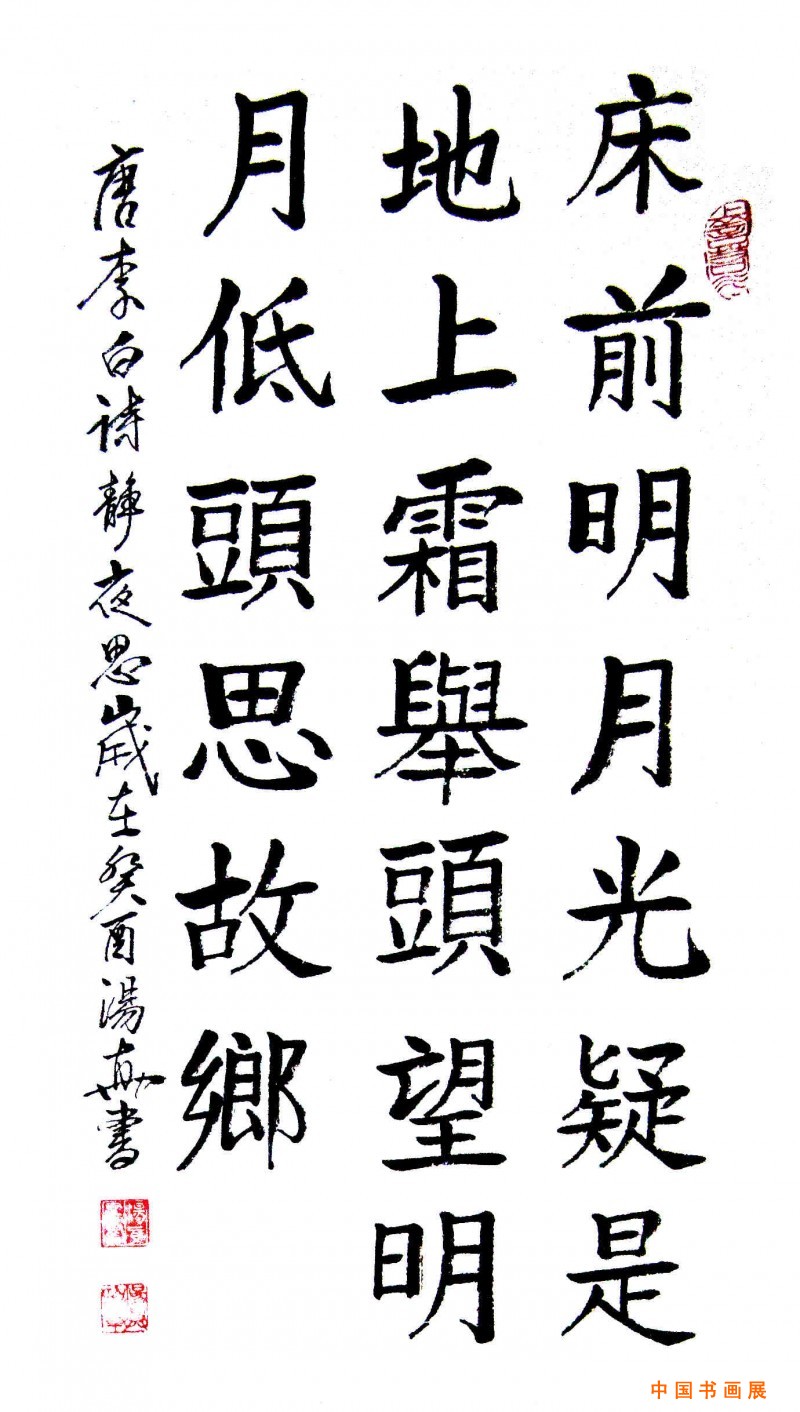 床前明月光疑是
地上霜舉頭望明
月低頭思故鄉
唐李白詩靜夜思歲在癸酉湯真書
中国书画展